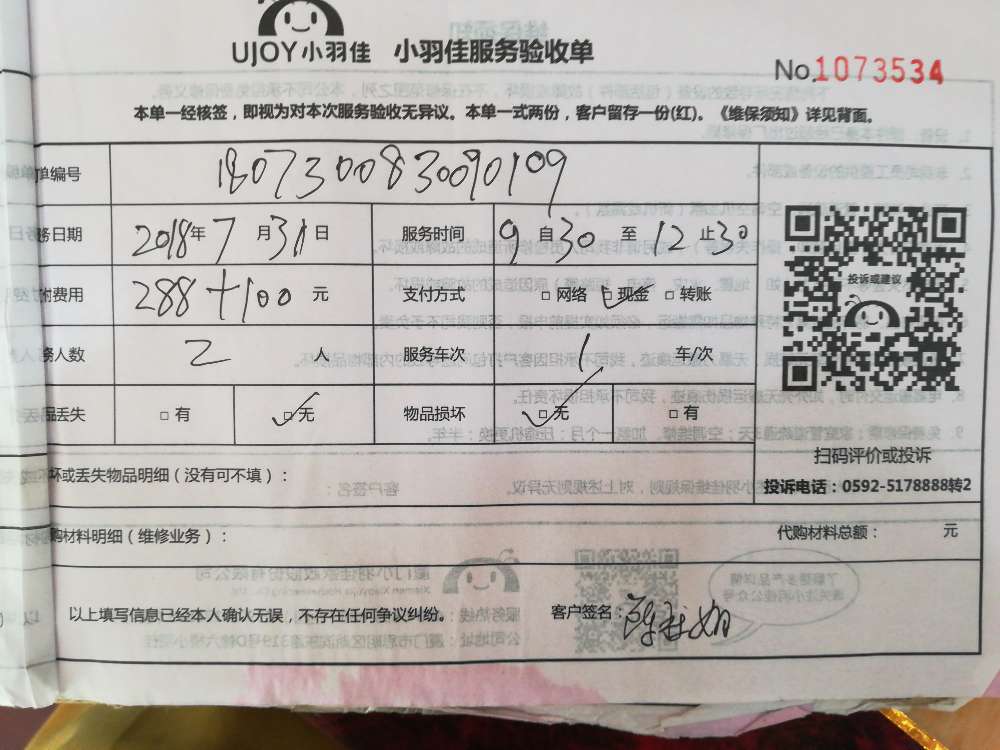 UJOY小羽佳 小羽佳服务验收单
No.1073534
本单一经核签，即视为对本次服务验收无异议。本单一式两份，客户留存一份(红)。《维保须知》详见背面。
单编号 180730083090109
务日期 2018年7月31日 服务时间 9自30至12止30
费用 288+100元 支付方式 □网络 □现金 □转账
投诉或建议
务人数 2人 服务车次 1车/次
品丢失 □有 □无 物品损坏 □无 □有
扫码评价或投诉
坏或丢失物品明细（没有可不填）：
投诉电话：0592-5178888转2
购材料明细（维修业务）：
代购材料总额： 元
以上填写信息已经本人确认无误，不存在任何争议纠纷。 客户签名：